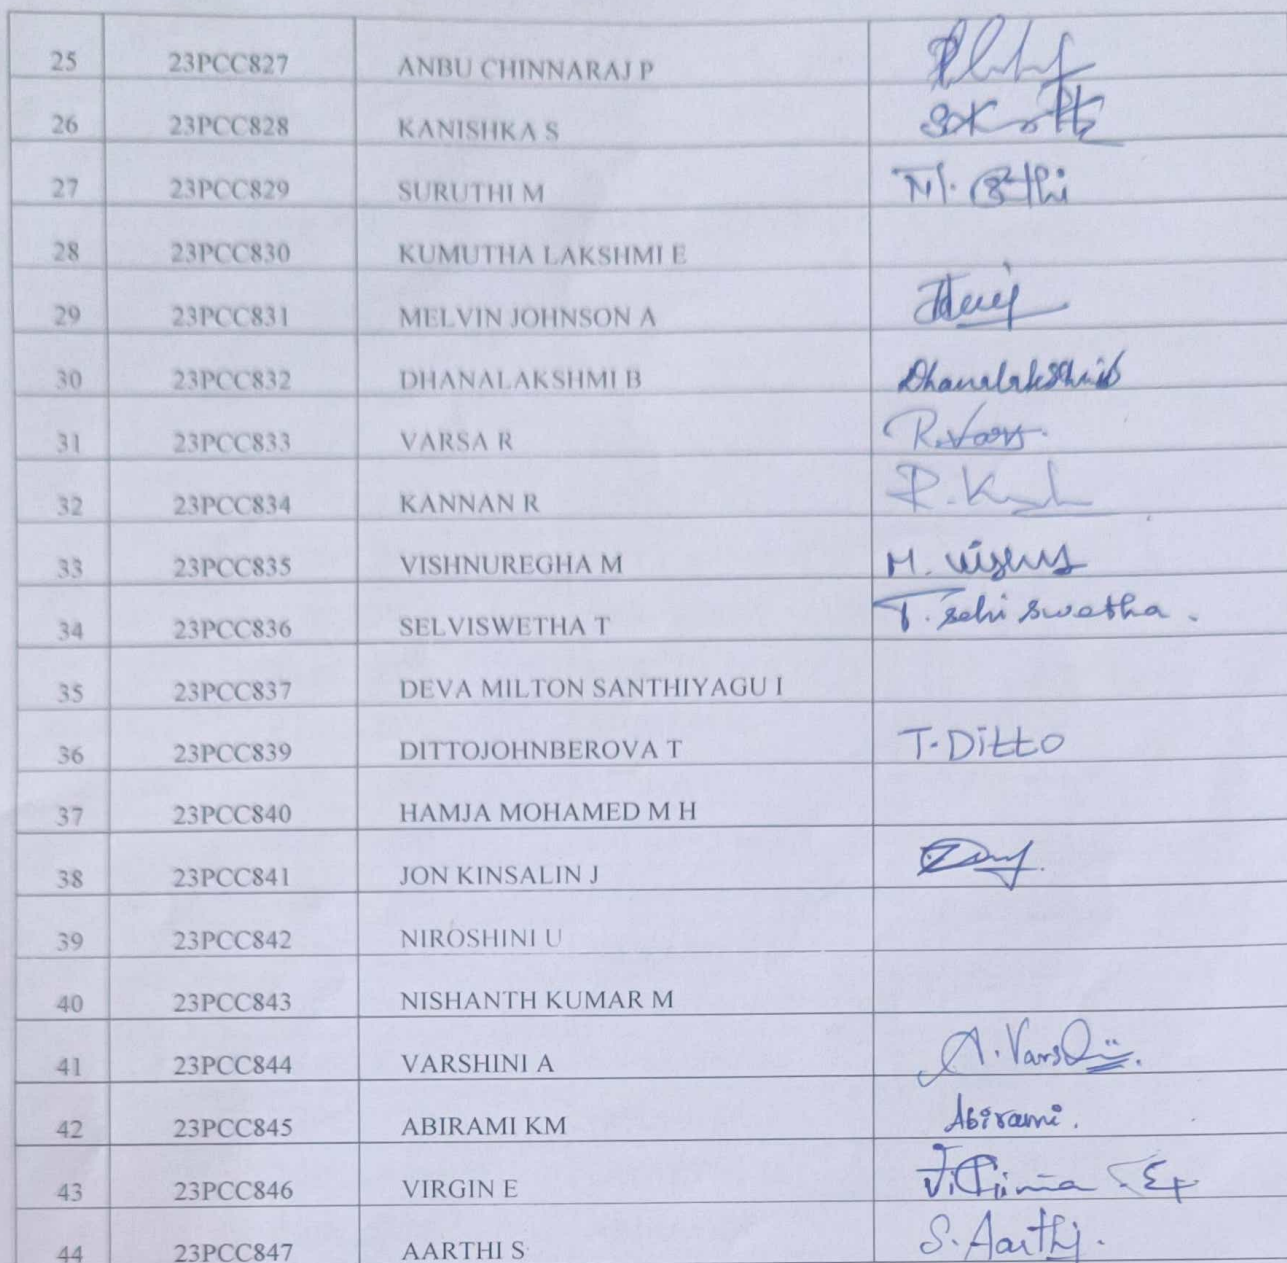 25 23PCC827 ANBU CHINNARAJ P
26 23PCC828 KANISHKA S
27 23PCC829 SURUTHI M
28 23PCC830 KUMUTHA LAKSHMI E
29 23PCC831 MELVIN JOHNSON A
30 23PCC832 DHANALAKSHMI B Dhanalakshmi B
31 23PCC833 VARSA R R.
32 23PCC834 KANNAN R R.
33 23PCC835 VISHNUREGHA M M.
34 23PCC836 SELVISWETHA T T. Selvi Swetha.
35 23PCC837 DEVA MILTON SANTHIYAGU I
36 23PCC839 DITTOJOHNBEROVA T T. Ditto
37 23PCC840 HAMJA MOHAMED M H
38 23PCC841 JON KINSALIN J
39 23PCC842 NIROSHINI U
40 23PCC843 NISHANTH KUMAR M
41 23PCC844 VARSHINI A A. Varshini.
42 23PCC845 ABIRAMI KM Abirami.
43 23PCC846 VIRGIN E
44 23PCC847 AARTHI S S. Aarthi.